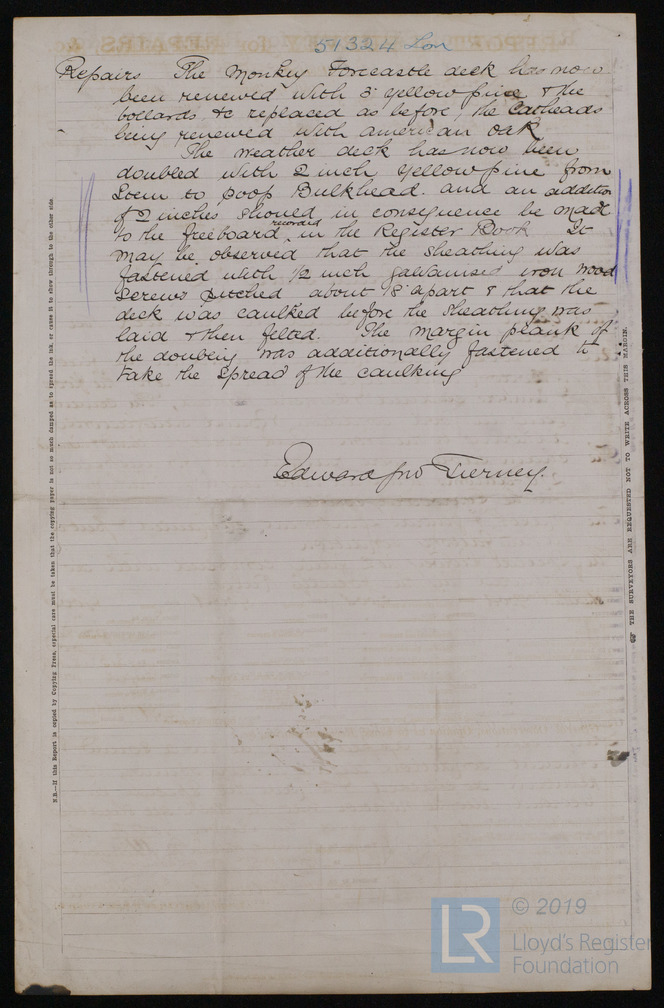 51324 Lon
Repairs The Monkey Forecastle deck has now
been renewed with 3" yellow pine & the
bollards &c replaced as before, the Catheads
being renewed with american oak
The weather deck has now been
doubled with 2 inch yellow pine from
Stem to poop Bulkhead. and an addition
of 2 inches should in consequence be made
to the freeboard recorded in the Register Book It
may be observed that the sheathing was
fastened with 1/2 inch galvanised iron wood
screws pitched about 18" apart & that the
deck was caulked before the sheathing was
laid & then felted. The margin plank of
the doubling was additionally fastened to
take the spread of the caulking
Edward Jno Tierney.
N.B.—If this Report is copied by Copying Press, especial care must be taken that the copying paper is not so much damped as to spread the ink, or cause it to show through to the other side.
THE SURVEYORS ARE REQUESTED NOT TO WRITE ACROSS THIS MARGIN.
LR
© 2019
Lloyd's Register
Foundation